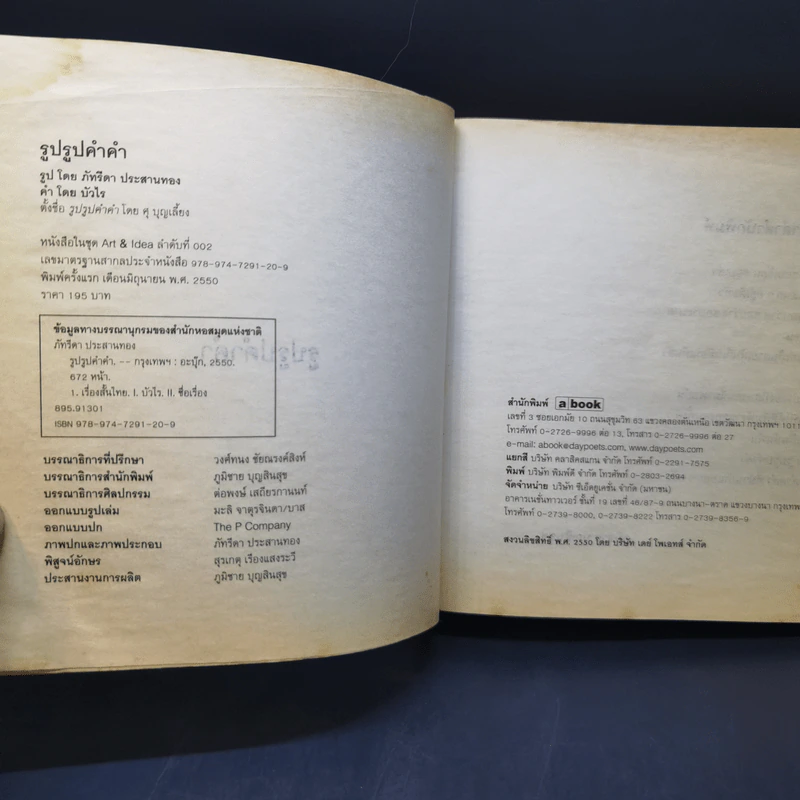 รูปรูปคำคำ
รูป โดย ภัทรีดา ประสานทอง
คำ โดย บัวไร
ตั้งชื่อ รูปรูปคำคำ โดย ศุ บุญเลี้ยง
หนังสือในชุด Art & Idea ลำดับที่ 002
เลขมาตรฐานสากลประจำหนังสือ 978-974-7291-20-9
พิมพ์ครั้งแรก เดือนมิถุนายน พ.ศ. 2550
ราคา 195 บาท
ข้อมูลทางบรรณานุกรมของสำนักหอสมุดแห่งชาติ
ภัทรีดา ประสานทอง
รูปรูปคำคำ. -- กรุงเทพฯ : อะบุ๊ก, 2550.
672 หน้า.
1. เรื่องสั้นไทย. I. บัวไร. II. ชื่อเรื่อง
895.91301
ISBN 978-974-7291-20-9
บรรณาธิการที่ปรึกษา วงศ์ทนง ชัยณรงค์สิงห์
บรรณาธิการสำนักพิมพ์ ภูมิชาย บุญสินสุข
บรรณาธิการศิลปกรรม ต่อพงษ์ เสถียรกานนท์
ออกแบบรูปเล่ม มะลิ จาตุรจินดา/บาส
ออกแบบปก The P Company
ภาพปกและภาพประกอบ ภัทรีดา ประสานทอง
พิสูจน์อักษร สุรเกตุ เรืองแสงระวี
ประสานงานการผลิต ภูมิชาย บุญสินสุข
สำนักพิมพ์ a book
เลขที่ 3 ซอยเอกมัย 10 ถนนสุขุมวิท 63 แขวงคลองตันเหนือ เขตวัฒนา กรุงเทพฯ 1011
โทรศัพท์ 0-2726-9996 ต่อ 13, โทรสาร 0-2726-9996 ต่อ 27
e-mail: abook@daypoets.com, www.daypoets.com
แยกสี บริษัท คลาสิคสแกน จำกัด โทรศัพท์ 0-2291-7575
พิมพ์ บริษัท พิมพ์ดี จำกัด โทรศัพท์ 0-2803-2694
จัดจำหน่าย บริษัท ซีเอ็ดยูเคชั่น จำกัด (มหาชน)
อาคารเนชั่นทาวเวอร์ ชั้นที่ 19 เลขที่ 46/87-9 ถนนบางนา-ตราด แขวงบางนา กรุงเทพ
โทรศัพท์ 0-2739-8000, 0-2739-8222 โทรสาร 0-2739-8356-9
สงวนลิขสิทธิ์ พ.ศ. 2550 โดย บริษัท เดย์ โพเอทส์ จำกัด